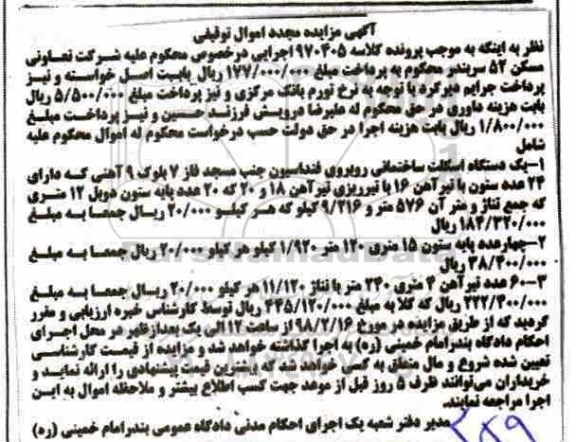 آگهی مزایده مجدد اموال توقیفی
نظر به اینکه به موجب پرونده کلاسه ۹۷۰۴۰۵ اجرایی درخصوص محکوم علیه شرکت تعاونی
مسکن ۵۲ سربندر محکوم به پرداخت مبلغ ۱۷۷/۰۰۰/۰۰۰ ریال بابت اصل خواسته و نیز
پرداخت جرایم دیرکرد با توجه به نرخ تورم بانک مرکزی و نیز پرداخت مبلغ ۵/۵۰۰/۰۰۰ ریال
بابت هزینه داوری در حق محکوم له علیرضا درویش فرزند حسین و نیز پرداخت مبلغ
۱/۸۰۰/۰۰۰ ریال بابت هزینه اجرا در حق دولت حسب درخواست محکوم له اموال محکوم علیه
شامل
۱-یک دستگاه اسکلت ساختمانی روبروی فنداسیون جنب مسجد فاز ۷ بلوک ۹ آهنی که دارای
۲۴ عدد ستون با تیرآهن ۱۶ با تیرریزی تیرآهن ۱۸ و ۲۰ که ۲۰ عدد پایه ستون دوبل ۱۲ متری
که جمع تناژ و متر آن ۵۷۶ متر و ۹/۲۱۶ کیلو که هر کیلو ۲۰/۰۰۰ ریال جمعا به مبلغ
۱۸۴/۳۲۰/۰۰۰ ریال
۲-چهارعدد پایه ستون ۱۵ متری ۱۲۰ متر ۱/۹۲۰ کیلو هر کیلو ۲۰/۰۰۰ ریال جمعا به مبلغ
۳۸/۴۰۰/۰۰۰ ریال
۳-۶۰ عدد تیرآهن ۴ متری ۲۴۰ متر با تناژ ۱۱/۱۲۰ هر کیلو ۲۰/۰۰۰ ریال جمعا به مبلغ
۲۲۲/۴۰۰/۰۰۰ ریال که کلا به مبلغ ۴۴۵/۱۲۰/۰۰۰ ریال توسط کارشناس خبره ارزیابی و مقرر
گردید که از طریق مزایده در مورخ ۹۸/۲/۱۶ از ساعت ۱۲ الی یک بعدازظهر در محل اجرای
احکام دادگاه بندرامام خمینی (ره) به اجرا گذاشته خواهد شد و مزایده از قیمت کارشناسی
تعیین شده شروع و مال متعلق به کسی خواهد شد که بیشترین قیمت پیشنهادی را ارائه نماید و
خریداران می‌توانند ظرف ۵ روز قبل از موعد جهت کسب اطلاع بیشتر و ملاحظه اموال به این
اجرا مراجعه نمایند.
مدیر دفتر شعبه یک اجرای احکام مدنی دادگاه عمومی بندرامام خمینی (ره)